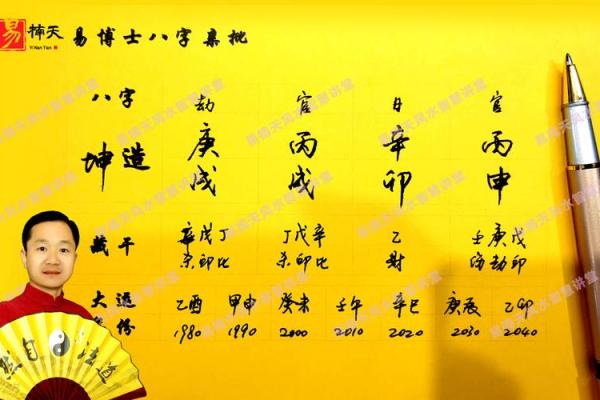 易 楠天 易博士八字亲批
Yi Nan Tian
八字 劫 官 日 官
坤造 庚 丙 辛 丙
戌 戌 卯 申
藏干 辛戊丁 丁戊辛 乙 壬庚戊
杀印比 杀印比 财 伤劫印
大运 乙酉 甲申 癸未 壬午 辛巳 庚辰 乙卯
年份 1980 1990 2000 2010 2020 2030 2040
易楠天风水智慧讲堂
道法自然